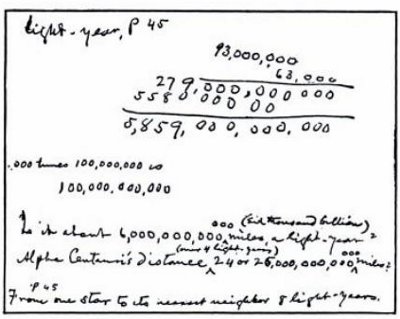 Light-year, P 45
93,000,000
63,000
279,000,000 000
5580 000 0 00
5,859, 000, 000, 000
.000 times 100,000,000 is
100,000,000,000
Is it about 6,000,000,000,000 (six thousand billion) miles, a light-year?
Alpha Centauri's distance (over 4 light-years) 24 or 26,000,000,000,000 miles?
P 45
From one star to its nearest neighbor 8 light-years.